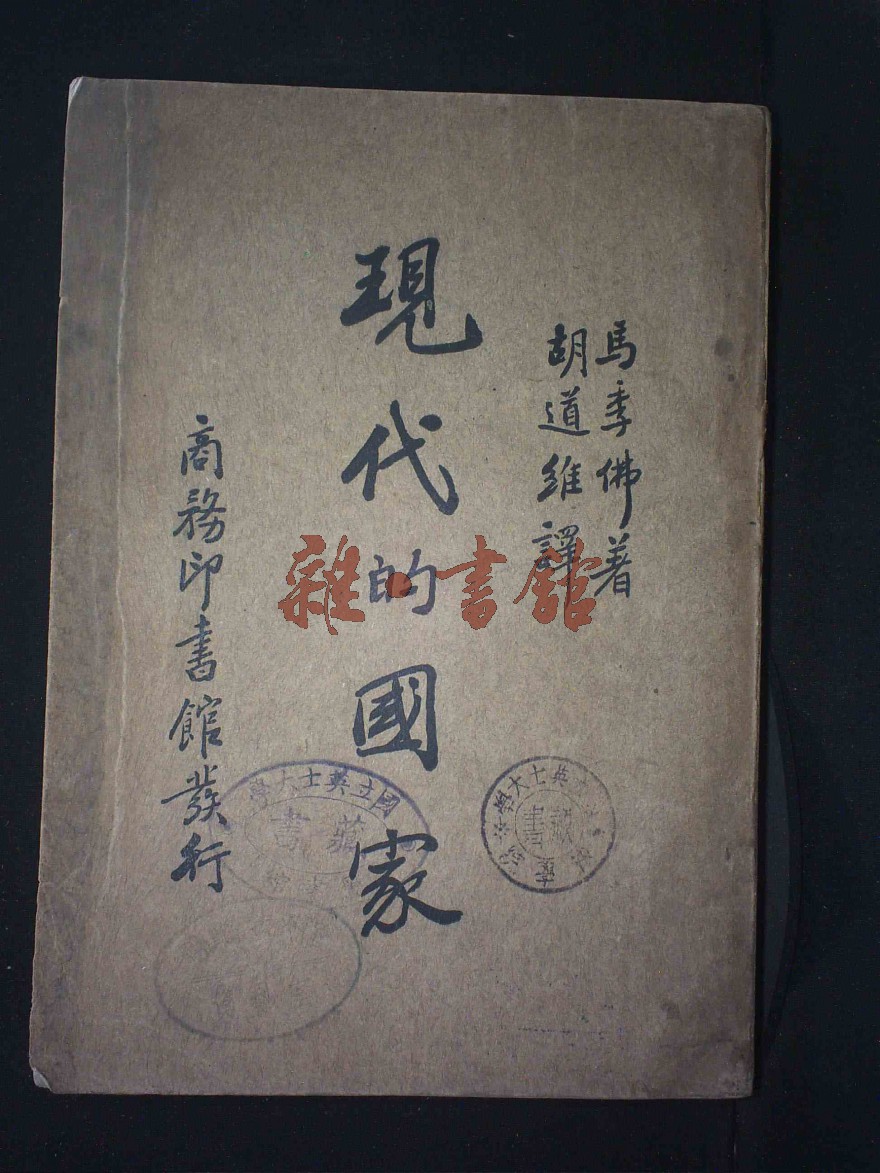 馬季佛著
胡道維譯
現代的國家
商務印書館發行
雜·書館
國立英士大學
藏書
英士大學
藏書